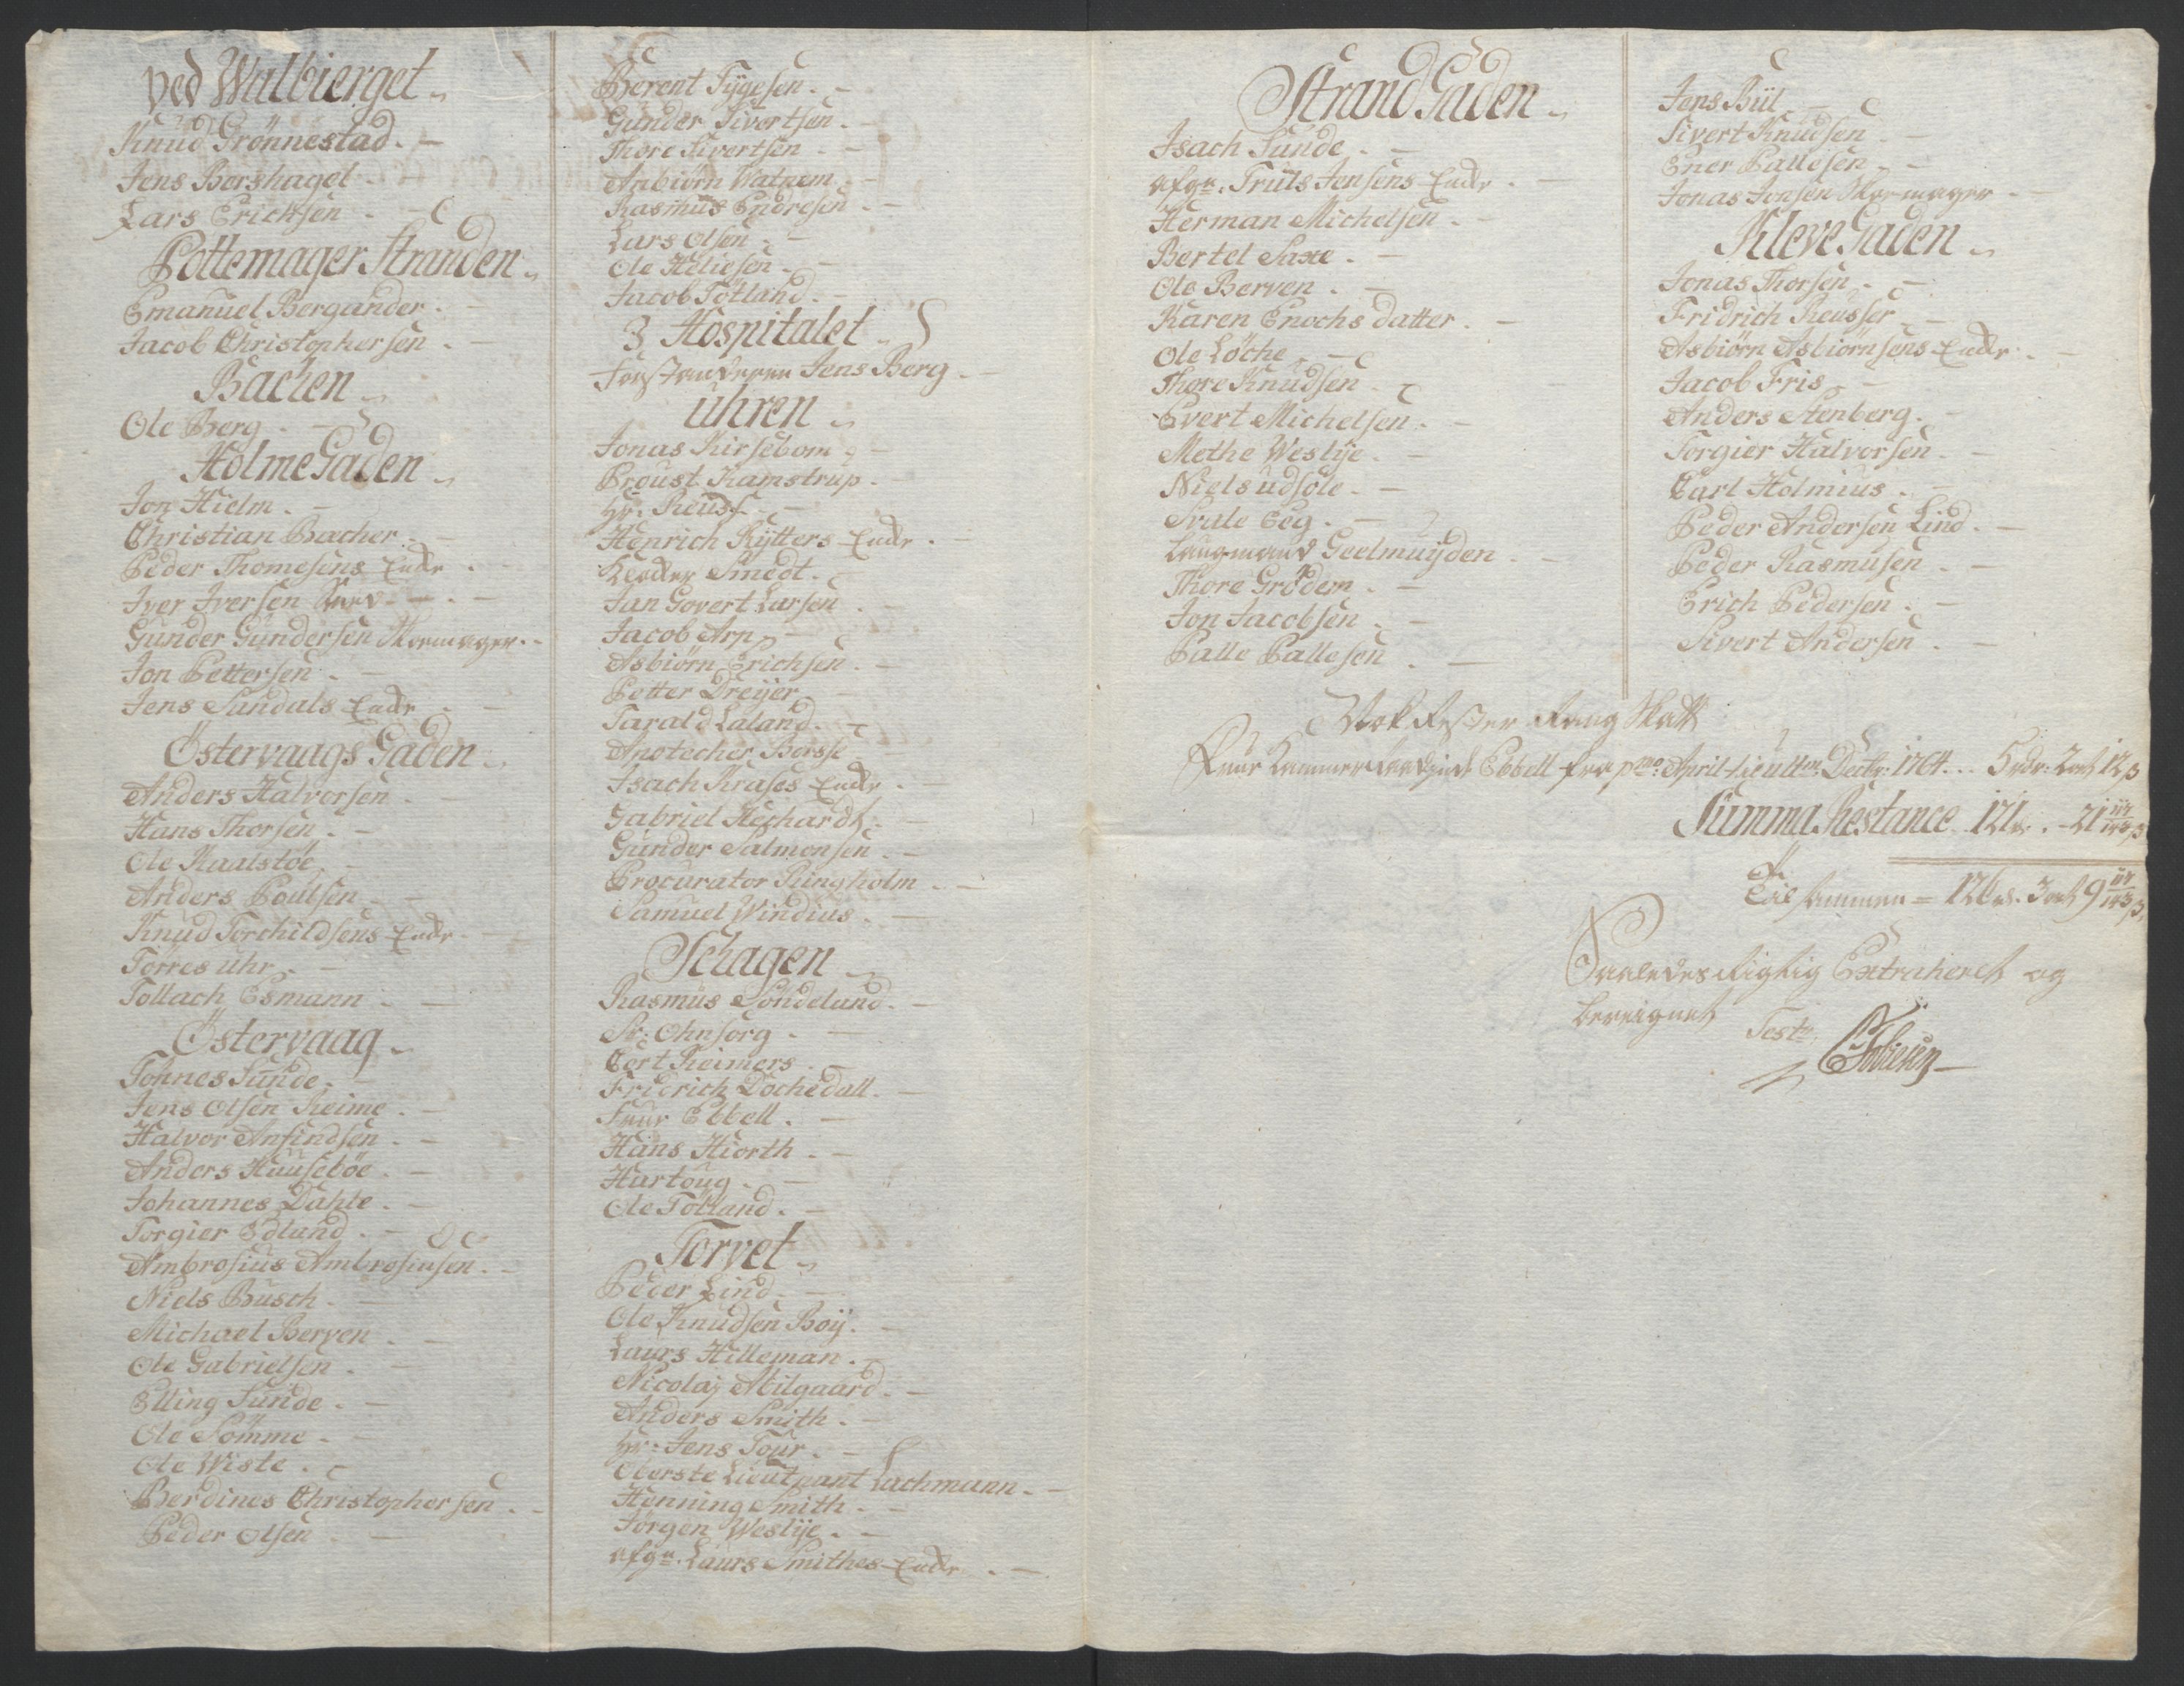 ved Wulbierget
Knud Grönnestad.
Jens Bershagel
Lars Ericksen
Pottemager Stranden
Emanuel Bergander.
Jacob Christophersen
Bachen
Ole Berg.
Holme Gaden
Jon Hielm.
Christian Bacher.
Peder Thomesens Encke
Iver Iversen
Gunder Gundersen Skoemager.
Jon Pettersen
Jens Sandals Encke
Östervaags Gaden
Anders Halvorsen
Hans Thorsen.
Ole Kaalstöe
Anders Poulsen
Knud Torchildsens Encke
Törres Uhr
Tollach Esmann
Östervaag
Tohnes Sunde.
Jens Olsen Reime.
Halvor Ansindsen
Anders Huuseböe
Johannes Dahle.
Torgier Edland.
Ambrosius Ambrosiusen.
Niels Busch.
Michael Berven
Ole Gabrielsen.
Elling Sunde.
Ole Sömme
Ole Wiste.
Berdines Christophersen.
Peder Olsen
Berent Tygesen.
Gunder Sivertsen.
Thore Sivertsen
Anbiörn Watnem
Rasmus Endresen
Lars Olsen
Ole Heliesen
Jacob Tötland.
3 Hospitalet
Forstanderen Jens Berg.
Uhren
Jonas Kirsebom
Proust Kamstrup.
Hr: Reuss
Henrich Rytters Encke.
Smedt.
Jan Govert Larsen
Jacob Arp
Asbiörn Erichsen.
Petter Dreyer
Tarald Laland.
Apotecher Borsse
Isach Krases Encke
Gabriel Hechardt.
Gunder Salmonsen
Procurator Ringholm
Samuel Windius.
Schagen
Rasmus Söndeland.
Sr: Ohnsorg.
Cort Reimers
Fridrich Dochedall.
Ebbell.
Hans Hiorth
Hartoug.
Ole Totland.
Torvet
Peder Lind
Ole Knudsen Boy.
Laurs Hilleman.
Nicolaj Abilgaard.
Anders Smith.
Hr: Jens Tour.
Oberste Lieutnant Lachmann.
Henning Smith.
Jörgen Weslye.
afgn. Laurs Smithes Encke
Strand Gaden
Isach Sunde.
afgn. Truls Jensens Encke
Herman Michelsen
Bertel Saxe.
Ole Berven.
Karen Enochs datter.
Ole Löche
Thore Knudsen
Evert Michelsen.
Methe Weslye.
Niels Udsole.
Svale Eeg.
Laugmand Geelmuyden
Thore Grödem.
Jon Jacobsen
Palle Pallesen
Jens Bül
Sivert Knudsen
Ener Pallesen
Jonas Jonsen Skoemager
Kleve Gaden
Jonas Thorsen
Fridrich Reusser
Asbiörn Asbiörnsens Encke.
Jacob Fris
Anders Stenberg.
Torgier Halvorsen.
Carl Holmius.
Peder Andersen Lind.
Peder Rasmusen
Erich Pedersen.
Sivert Andersen
Rester Rang Skatt
Ebbell fra pmo: April til ultm: Decbr: 1764... 5 rdr: 2 ort 12 s
Summa Restance 121 . 21
Tilsammen = 126 rd. 3 ort 9
Saaledes Rigtig Extraheret og
bereignet
Test: